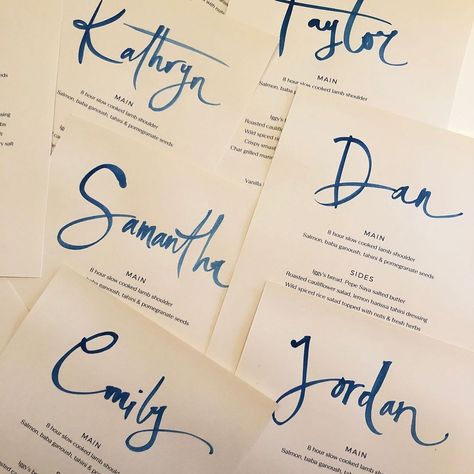 Kathryn
MAIN
8 hour slow cooked lamb shoulder
Salmon, baba ganoush, tahini & pomegranate seeds
Taylor
MAIN
8 hour slow cooked lamb shoulder
Salmon, baba ganoush, tahini & pomegranate seeds
Iggy's
Roasted cauliflower
Wild spiced rice
Crispy smas
Char grilled mari
Vanilla
Samantha
MAIN
8 hour slow cooked lamb shoulder
Salmon, baba ganoush, tahini & pomegranate seeds
Dan
MAIN
8 hour slow cooked lamb shoulder
Salmon, baba ganoush, tahini & pomegranate seeds
SIDES
Iggy's bread, Pepe Saya salted butter
Roasted cauliflower salad, lemon harissa tahini dressing
Wild spiced rice salad topped with nuts & fresh herbs
Emily
MAIN
8 hour slow cooked lamb shoulder
Salmon, baba ganoush, tahini & pomegranate seeds
Jordan
MAIN
8 hour slow cooked lamb shoulder
Salmon, baba ganoush, tahini & pomegranate seeds